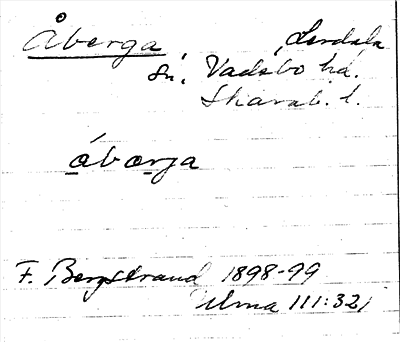 Åberga, Lerdala
sn. Vadsbo hd.
Skarab. l.
ǻbærja
F. Bergstrand 1898-99
Ulma 111:321